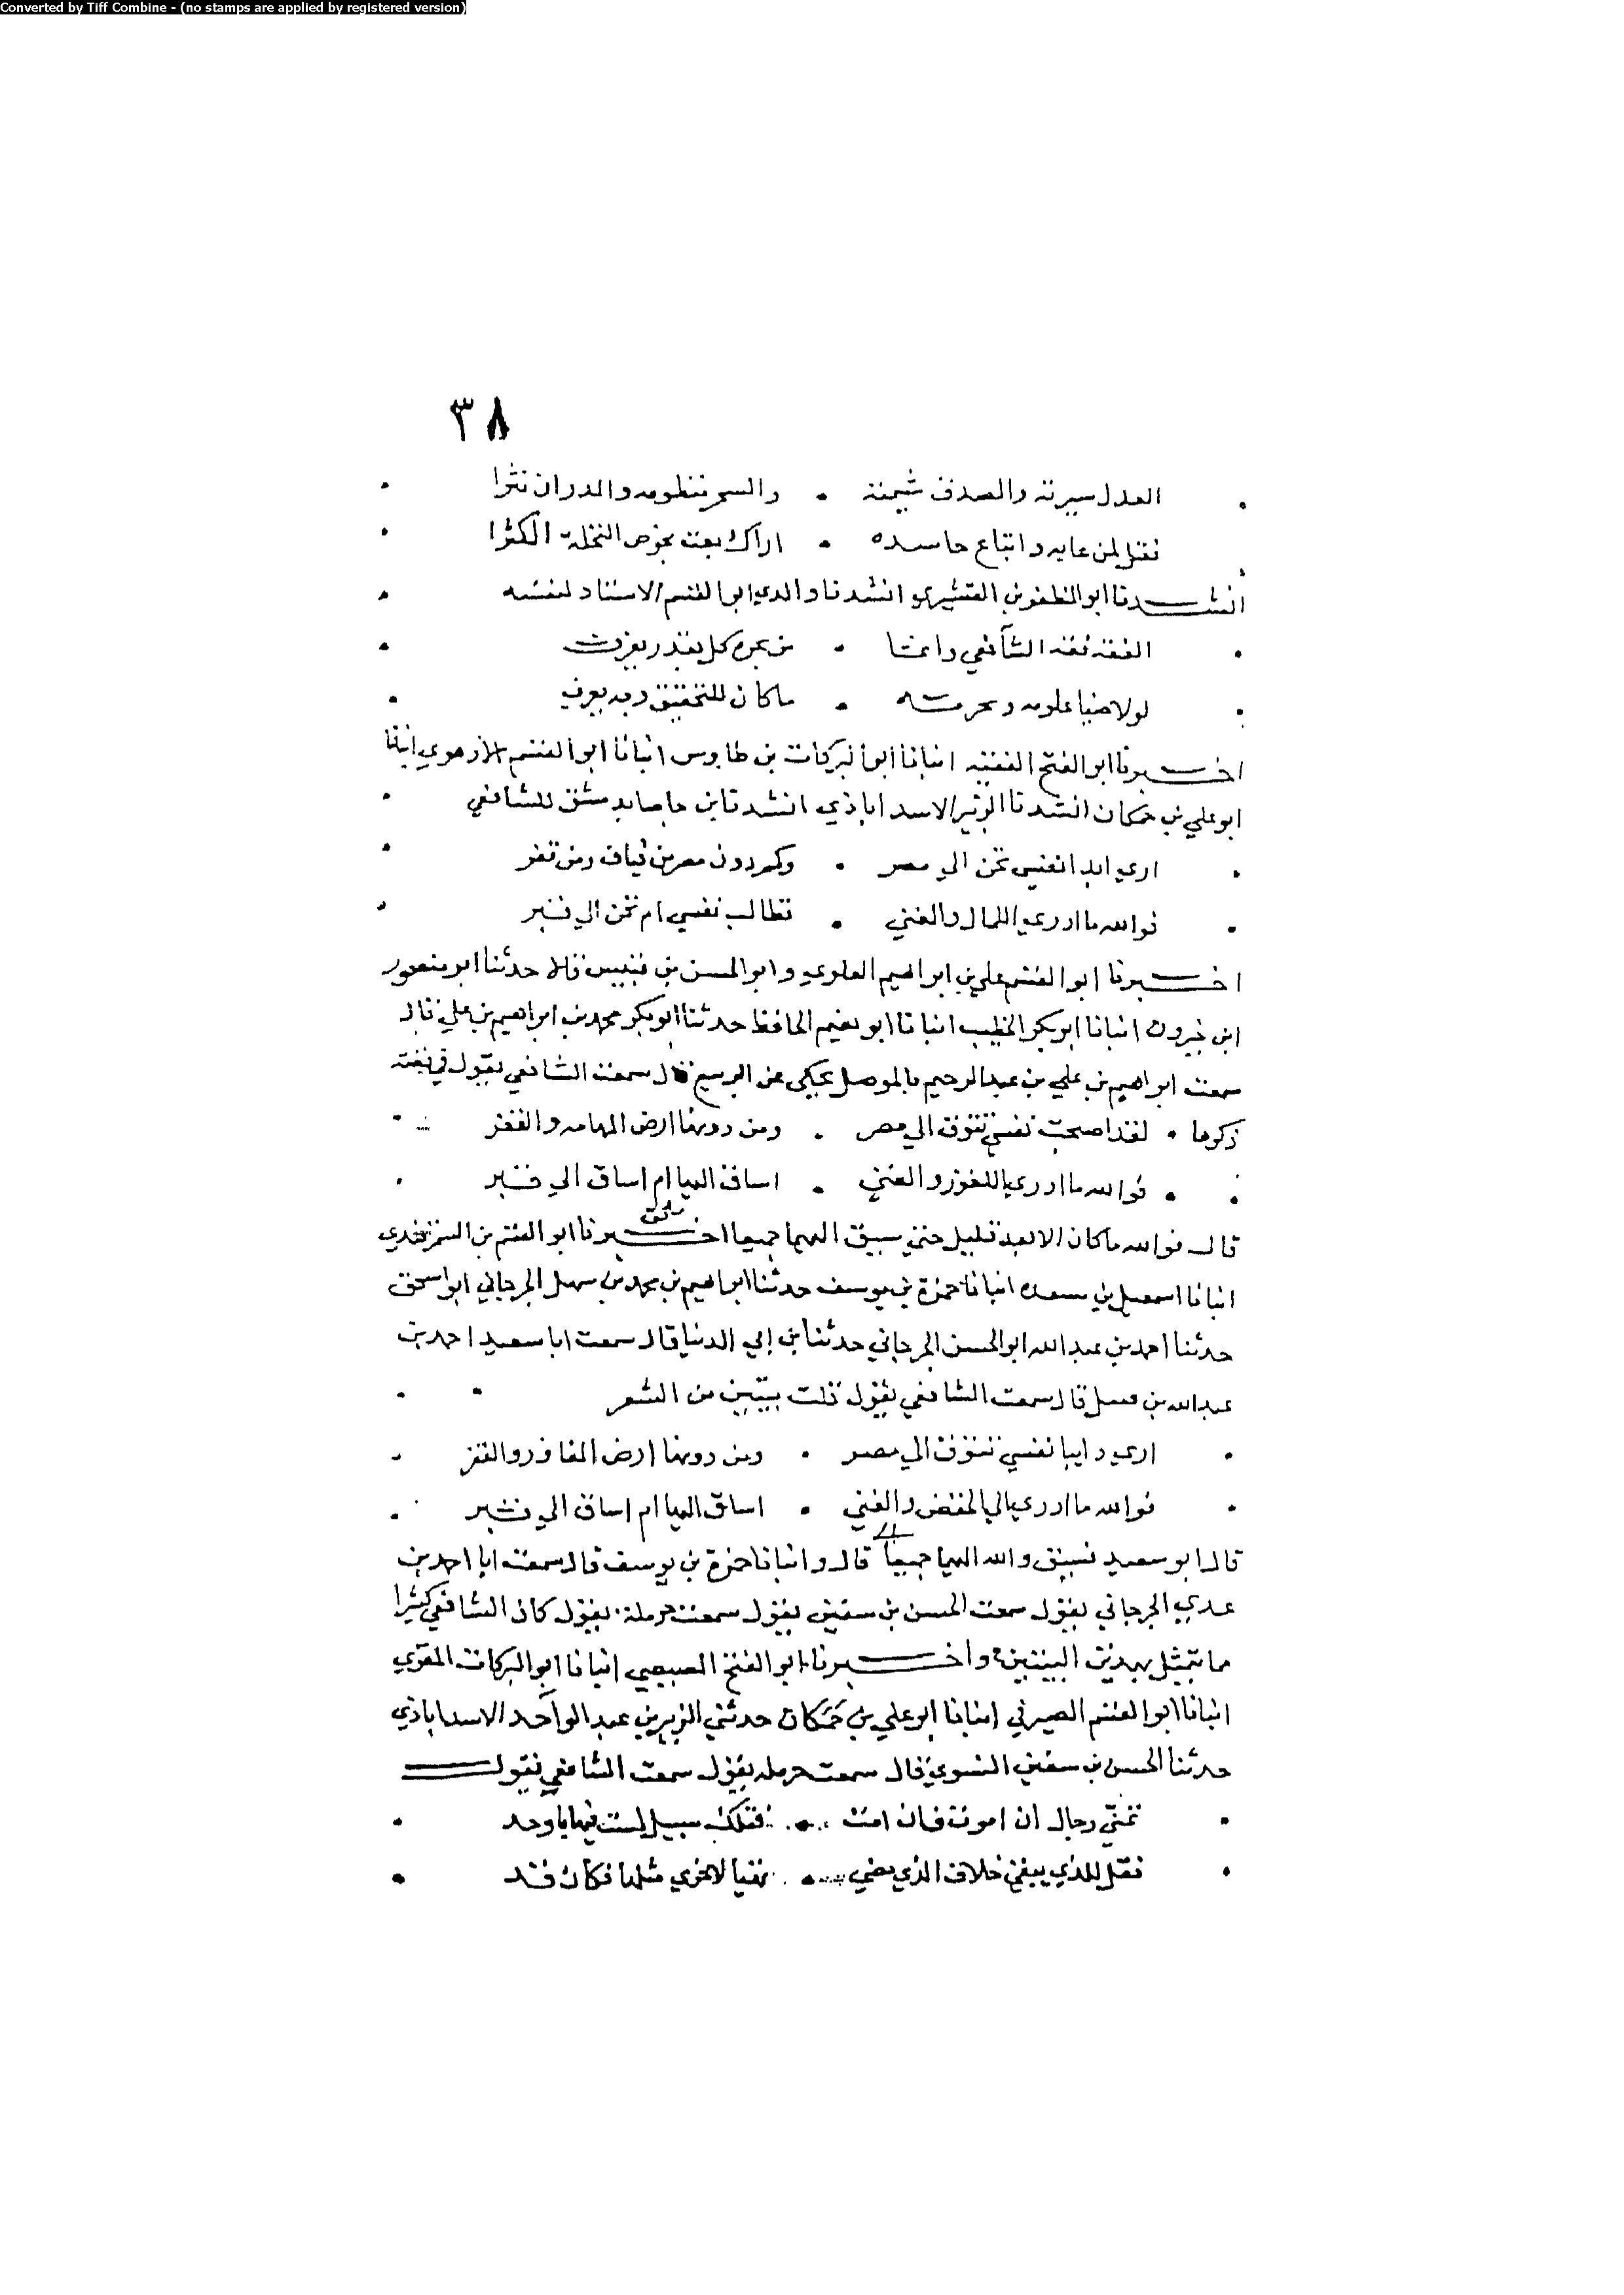 Converted by Tiff Combine - (no stamps are applied by registered version)
٣٨
العدل سيرته والصدق شيمته • والسحر منظومه والدر ان نثرا
فقل لمن عابه واتباع حاسده • اراك بعت بخوص النخلة الكثرا
انشدنا ابو المظفر بن القشيري انشدنا والدي ابو القسم الاستاذ لنفسه
الفقه فقه الشافعي وانما • من بحره كل بقدر يغرف
لولا ضيا علومه • ما كان للتحقيق وجه يعرف
اخبرنا ابو الفتح الفقيه انبانا ابو البركات بن طاوس انبانا ابو القسم الازهري انبانا
ابو علي بن حمكان انشدنا الزبير الاسداباذي انشدنا بن جوصا بدمشق للشافعي
اري ابدا نفسي تحن الي مصر • وكم دون مصر من فياف ومن قفر
فوالله ما ادري اللمال والغني • تطالب نفسي ام تحن الي قبر
اخبرنا ابو القسم علي بن ابراهيم العلوي وابو الحسن بن قبيس قالا حدثنا ابو منصور
ابن خيرون انبانا ابو بكر الخطيب انبانا ابو نعيم الحافظ حدثنا ابو بكر محمد بن ابراهيم بن علي قال
سمعت ابراهيم بن علي بن عبد الرحيم بالموصل يحكي عن الربيع قال سمعت الشافعي يقول في قصة
ذكرها • لقد اصبحت نفسي تتوق الي مصر • ومن دونها ارض المهامه والقفر
فوالله ما ادري اللفوز والغني • اساق اليها ام اساق الي قبر
قال فوالله ما كان الا بعد قليل حتي سيق اليهما جميعا اخبرنا ابو القسم بن السمرقندي
انبانا اسمعيل بن مسعده انبانا حمزة بن يوسف حدثنا ابراهيم بن محمد بن سهل الجرجاني ابو اسحق
حدثنا احمد بن عبد الله ابو الحسن الجرجاني حدثنا بن ابي الدنيا قال سمعت ابا سعيد احمد بن
عبد الله بن قال سمعت الشافعي يقول قلت بيتين من الشعر
اري دايبا نفسي تتوق الي مصر • ومن دونها ارض المفاوز والقفر
فوالله ما ادري الي الخفض والغني • اساق اليها ام اساق الي قبر
قال ابو سعيد فسيق والله اليهما جميعا قال وانبانا حمزة بن يوسف قال سمعت ابا احمد بن
عدي الجرجاني يقول سمعت الحسن بن سفين يقول سمعت حرملة يقول كان الشافعي كثيرا
ما يتمثل بهذين البيتين واخبرنا ابو الفتح المصيصي انبانا ابو البركات المقري
انبانا ابو القسم الصيرفي انبانا ابو علي بن حمكان حدثني الزبير بن عبد الواحد الاسداباذي
حدثنا الحسن بن سفين النسوي قال سمعت حرمله يقول سمعت الشافعي يقول
تمني رجال ان اموت فان امت • فتلك سبيل لست فيها باوحد
فقل للذي يبغي خلاف الذي مضي • تهيا لاخري مثلها فكان قد